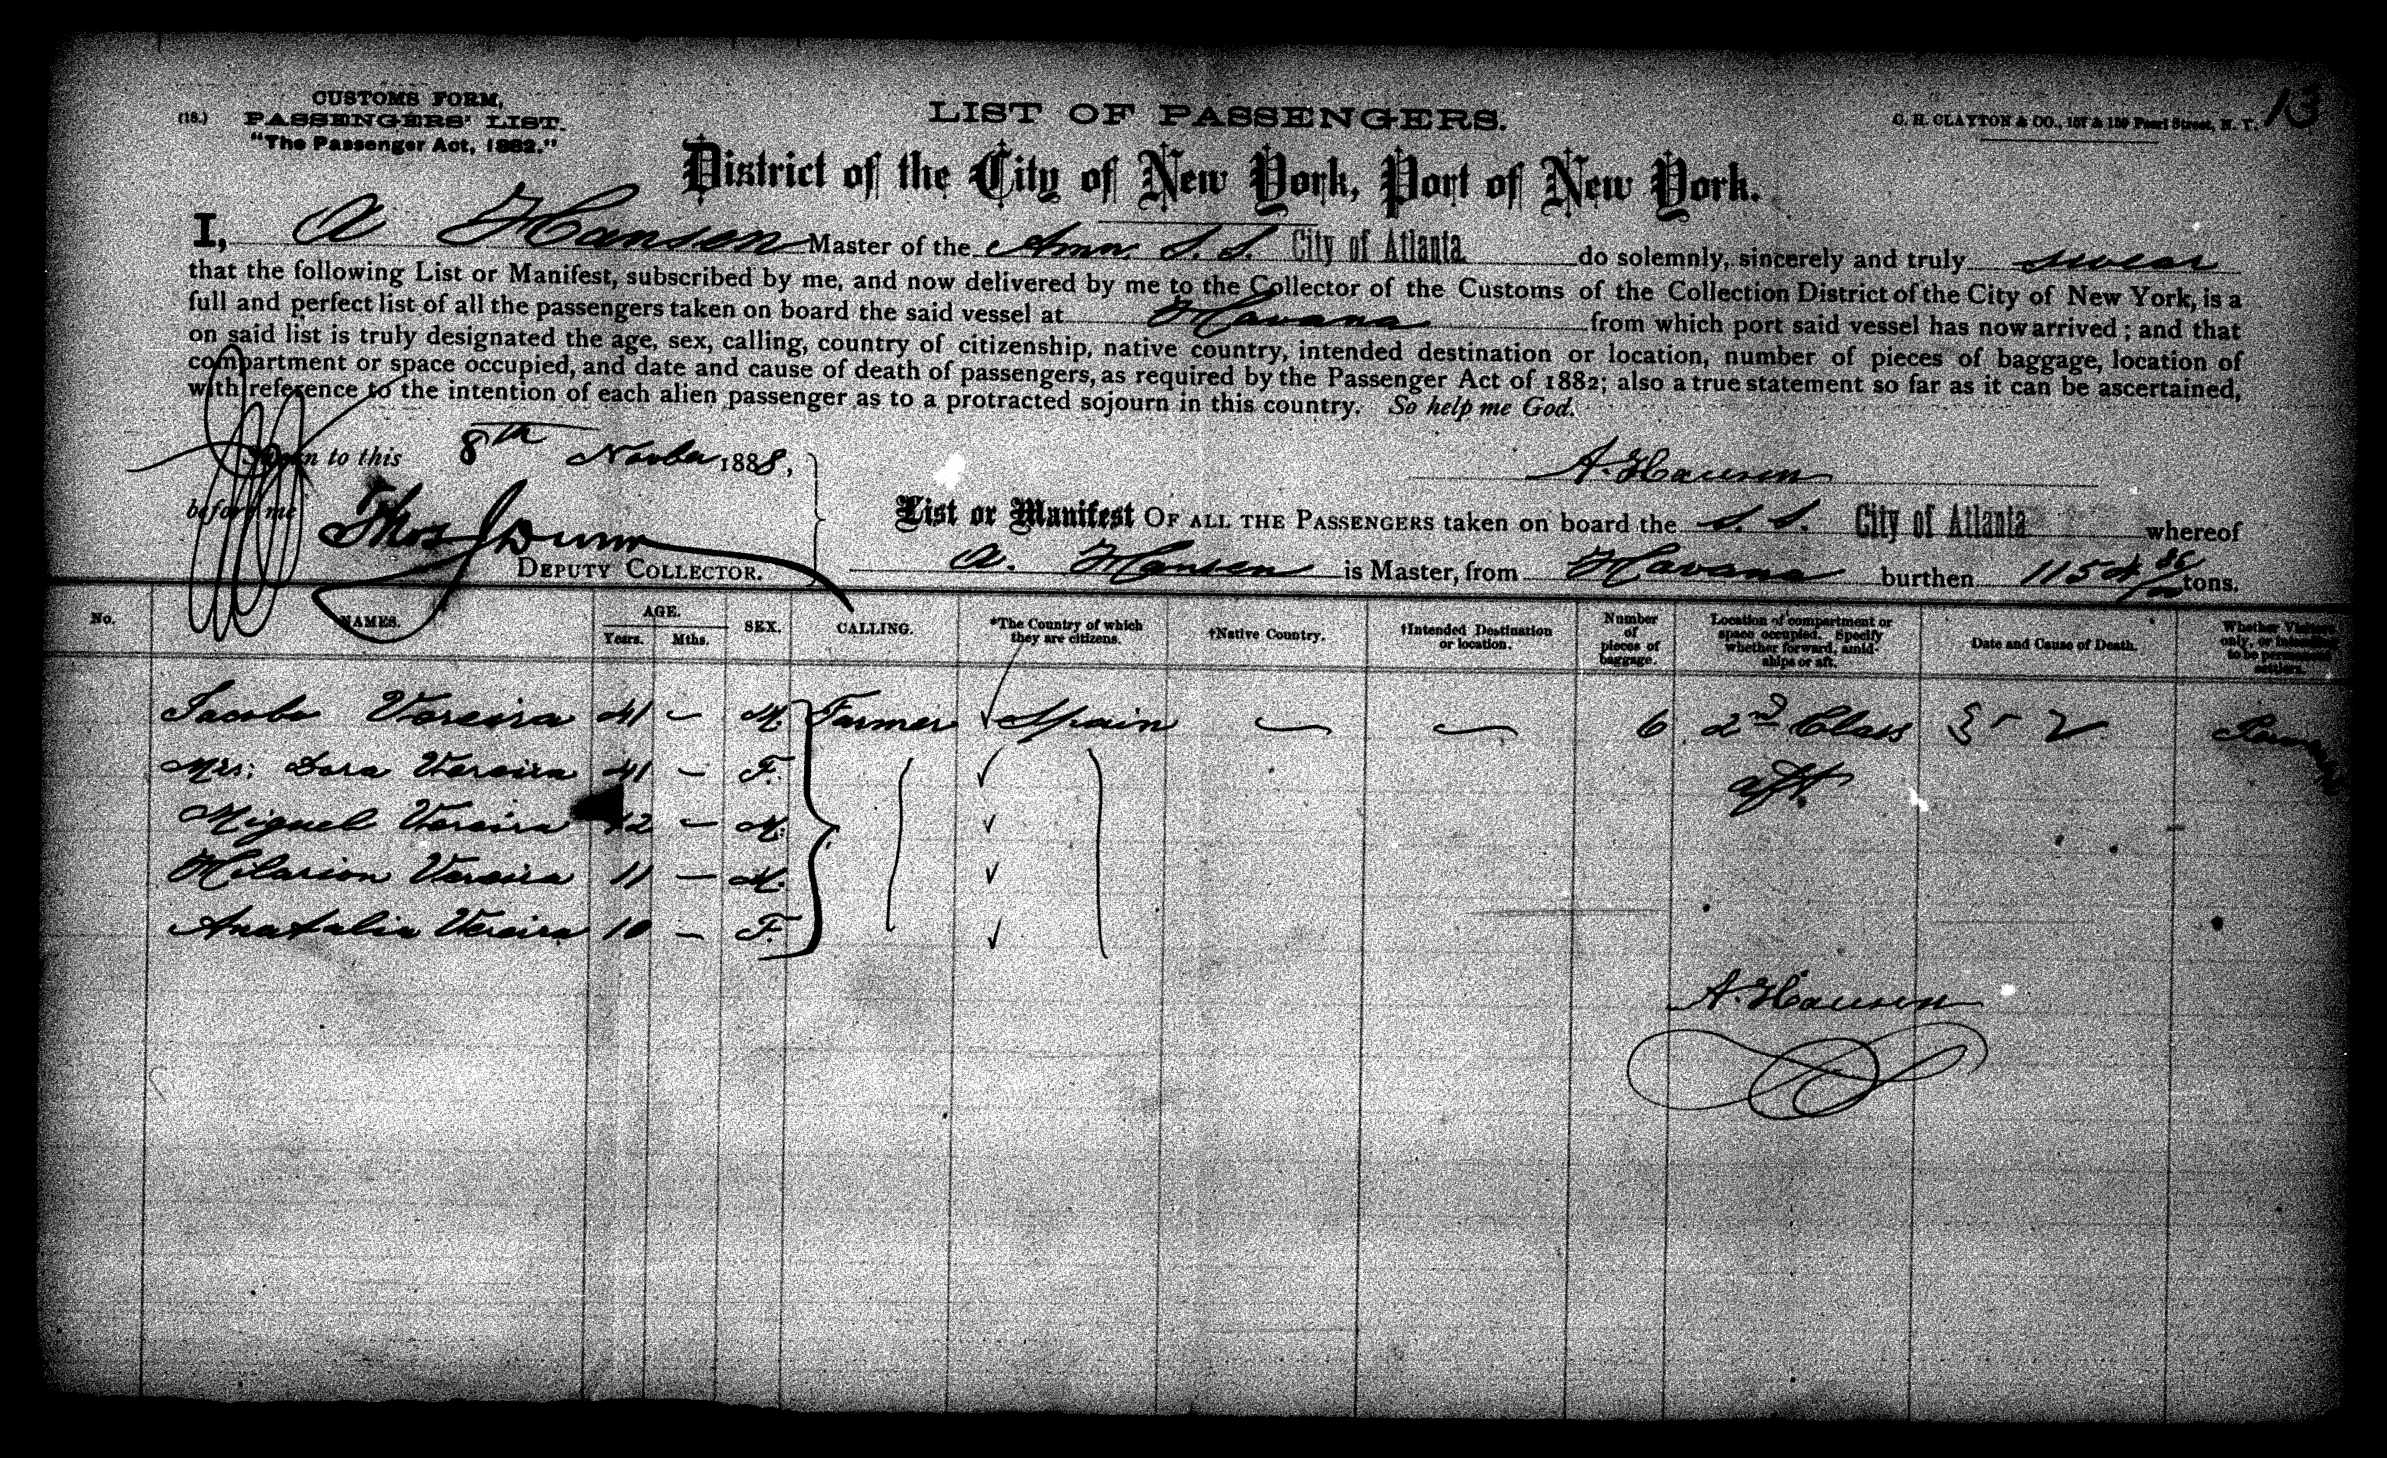 13
CUSTOMS FORM,
(18.) PASSENGERS' LIST.
"The Passenger Act, 1882."
LIST OF PASSENGERS.
C. H. CLAYTON & CO., 157 & 159 Pearl Street, N. Y.
District of the City of New York, Port of New York.
I, A Hansen Master of the Amn. S. S. City of Atlanta do solemnly, sincerely and truly swear
that the following List or Manifest, subscribed by me, and now delivered by me to the Collector of the Customs of the Collection District of the City of New York, is a
full and perfect list of all the passengers taken on board the said vessel at Havana from which port said vessel has now arrived; and that
on said list is truly designated the age, sex, calling, country of citizenship, native country, intended destination or location, number of pieces of baggage, location of
compartment or space occupied, and date and cause of death of passengers, as required by the Passenger Act of 1882; also a true statement so far as it can be ascertained,
with reference to the intention of each alien passenger as to a protracted sojourn in this country. So help me God.
Sworn to this 8th Novber 1888,
A. Hansen
before me Thos J Dunn
DEPUTY COLLECTOR.
List or Manifest OF ALL THE PASSENGERS taken on board the S. S. City of Atlanta whereof
A. Hansen is Master, from Havana burthen 1154 86/100 tons.
No. NAMES. AGE. Years. Mths. SEX. CALLING. *The Country of which they are citizens. †Native Country. †Intended Destination or location. Number of pieces of baggage. Location of compartment or space occupied. Specify whether forward, amidships or aft. Date and Cause of Death. Whether Visitors only, or to be permanent settlers.
Jacobo Vereira 41 — M. Farmer Spain — — 6 2nd Class
Mrs. Dora Vereira 41 — F. aft
Miguel Vereira 12 — M.
Hilarion Vereira 11 — M.
Anatalia Vereira 10 — F.
A. Hansen